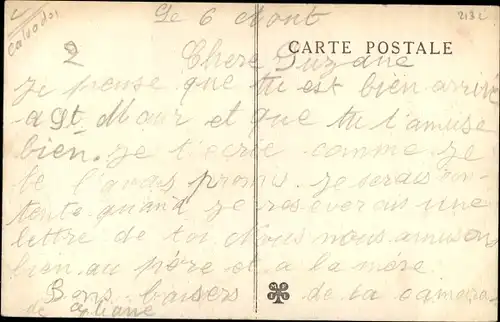 Calvados
213 c
Le 6 Aout
CARTE POSTALE
2 Chere Suzane
Je pense que tu est bien arrivé
a St Maur et que tu t'amuse
bien. Je t'ecrie comme je
te l'avais promis. Je serais con-
tente quand je reseverais une
lettre de toi. Nous nous amusons
bien au père et a la mère
Bons baisers de ta camara
de Eliane